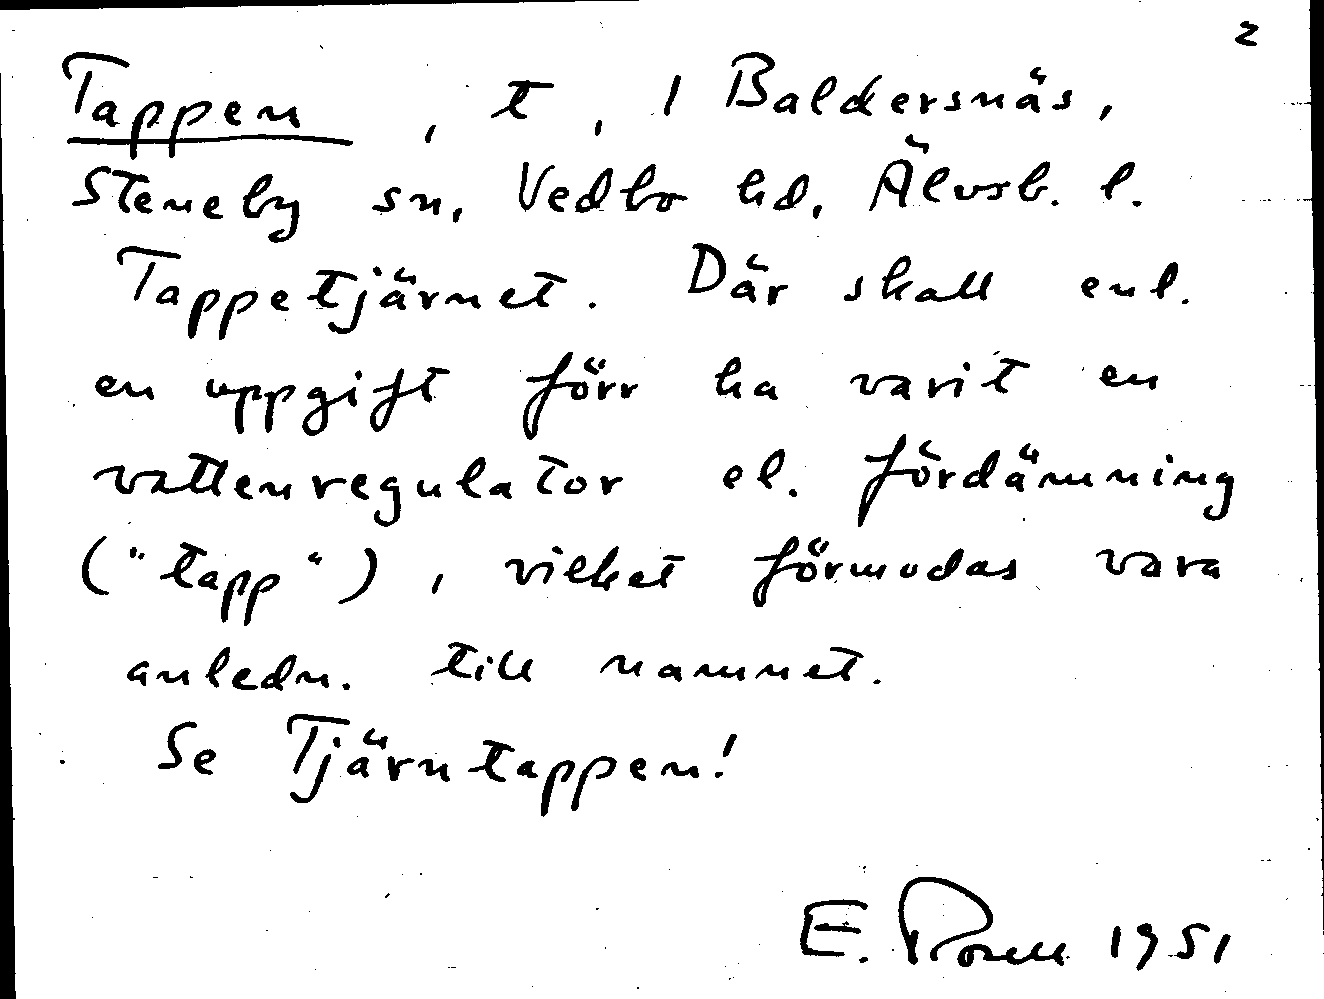 2
Tappen, t, 1 Baldersnäs,
Steneby sn, Vedbo hd, Älvsb. l.
Tappetjärnet. Där skall enl.
en uppgift förr ha varit en
vattenregulator el. fördämning
("tapp"), vilket förmodas vara
anledn. till namnet.
Se Tjärntappen!
E. 1951